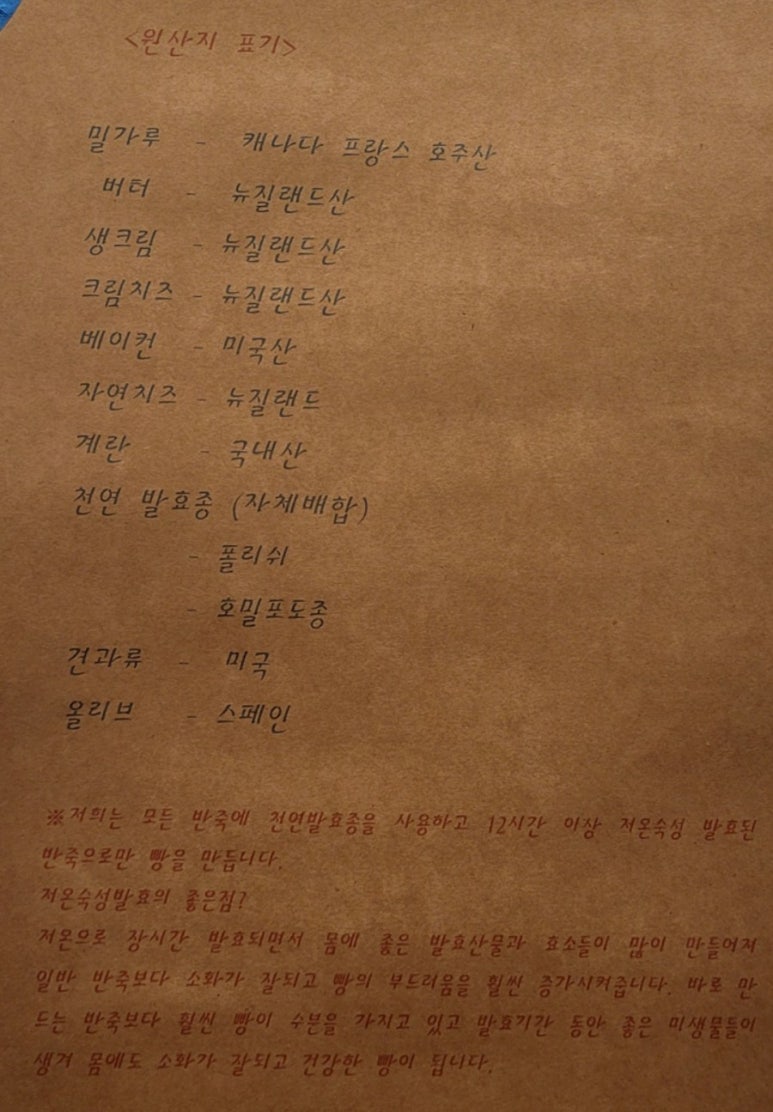 <원산지 표기>
밀가루 - 캐나다 프랑스 호주산
버터 - 뉴질랜드산
생크림 - 뉴질랜드산
크림치즈 - 뉴질랜드산
베이컨 - 미국산
자연치즈 - 뉴질랜드
계란 - 국내산
천연 발효종 (자체배합)
- 폴리쉬
- 호밀포도종
견과류 - 미국
올리브 - 스페인
※저희는 모든 반죽에 천연발효종을 사용하고 12시간 이상 저온숙성 발효된
반죽으로만 빵을 만듭니다.
저온숙성발효의 좋은점?
저온으로 장시간 발효되면서 몸에 좋은 발효산물과 효소들이 많이 만들어져
일반 반죽보다 소화가 잘되고 빵의 부드러움을 훨씬 증가시켜줍니다. 바로 만
드는 반죽보다 훨씬 빵이 수분을 가지고 있고 발효기간 동안 좋은 미생물들이
생겨 몸에도 소화가 잘되고 건강한 빵이 됩니다.